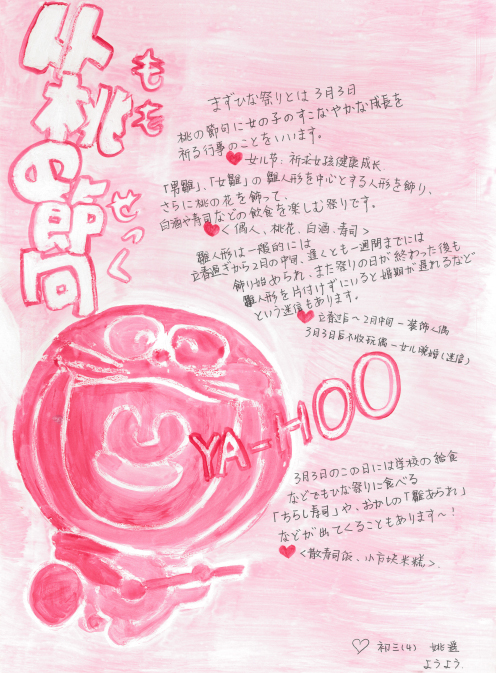 桃の節句
もも
せっく
まずひな祭りとは3月3日
桃の節句に女の子のすこやかな成長を
祈る行事のことをいいます。
女儿节:祈求女孩健康成长
「男雛」、「女雛」の雛人形を中心とする人形を飾り、
さらに桃の花を飾って、
白酒や寿司などの飲食を楽しむ祭りです。
<偶人、桃花、白酒、寿司>
雛人形は一般的には
立春過ぎから2月の中旬、遅くとも一週間までには
飾り始められ、また祭りの日が終わった後も
雛人形を片付けずにいると婚期が遅れるなど
という迷信もあります。
立春过后~2月中旬-装饰人偶
3月3日后不收玩偶-女儿晚婚(迷信)
YA-HOO
3月3日のこの日には学校の給食
などでもひな祭りに食べる
「ちらし寿司」や、おかしの「雛あられ」
などが出てくることもあります~!
<散寿司饭、小方块米糕>
初三(4) 姚遥
ようよう